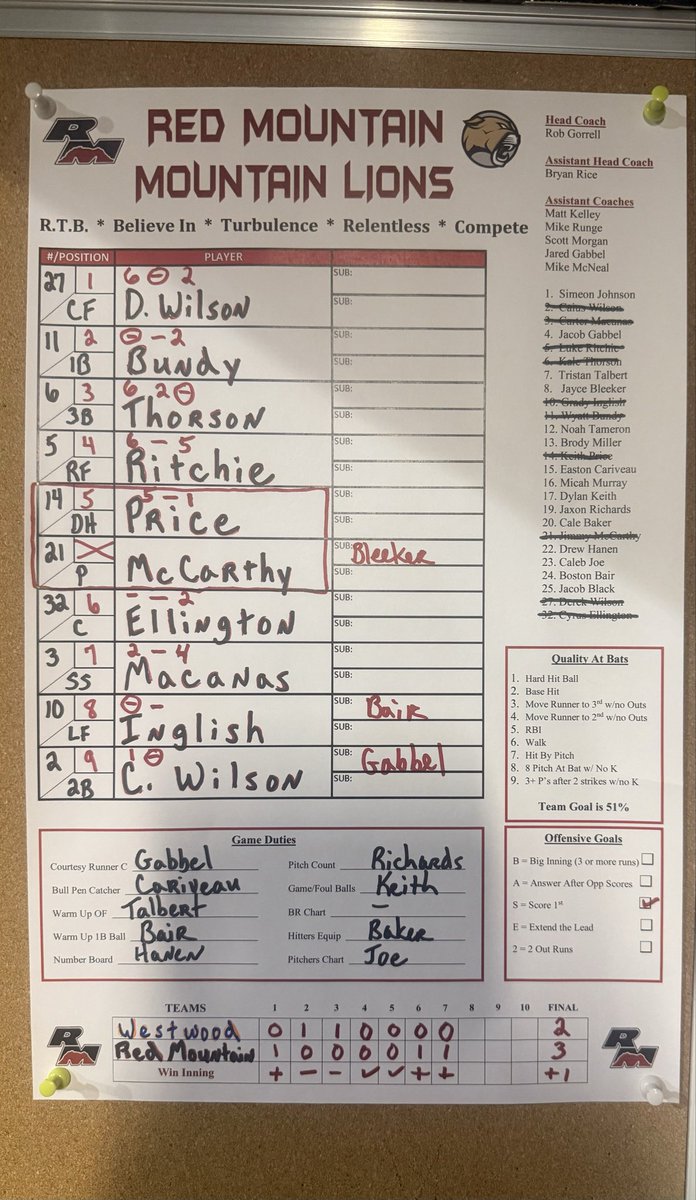 RM
RED MOUNTAIN
MOUNTAIN LIONS
R.T.B. * Believe In * Turbulence * Relentless * Compete
Head Coach
Rob Gorrell
Assistant Head Coach
Bryan Rice
Assistant Coaches
Matt Kelley
Mike Runge
Scott Morgan
Jared Gabbel
Mike McNeal
1. Simeon Johnson
2. Caius Wilson
3. Carter Macanas
4. Jacob Gabbel
5. Luke Ritchie
6. Kale Thorson
7. Tristan Talbert
8. Jayce Bleeker
10. Grady Inglish
11. Wyatt Bundy
12. Noah Tameron
13. Brody Miller
14. Keith Price
15. Easton Cariveau
16. Micah Murray
17. Dylan Keith
19. Jaxon Richards
20. Cale Baker
21. Jimmy McCarthy
22. Drew Hanen
23. Caleb Joe
24. Boston Bair
25. Jacob Black
27. Derek Wilson
32. Cyrus Ellington
#/POSITION PLAYER
27 1 6 ⊖ 2 SUB:
CF D. Wilson SUB:
11 2 ⊖ - 2 SUB:
1B Bundy SUB:
6 3 6 2 ⊖ SUB:
3B Thorson SUB:
5 4 6 - 5 SUB:
RF Ritchie SUB:
14 5 5 - 1 SUB:
DH Price SUB:
21 X SUB: Bleeker
P McCarthy SUB:
32 6 - - 2 SUB:
C Ellington SUB:
3 7 2 - 4 SUB:
SS Macanas SUB:
10 8 ⊖ - SUB: Bair
LF Inglish SUB:
2 9 1 ⊖ SUB: Gabbel
2B C. Wilson SUB:
Quality At Bats
1. Hard Hit Ball
2. Base Hit
3. Move Runner to 3rd w/no Outs
4. Move Runner to 2nd w/no Outs
5. RBI
6. Walk
7. Hit By Pitch
8. 8 Pitch At Bat w/ No K
9. 3+ P's after 2 strikes w/no K
Team Goal is 51%
Game Duties
Courtesy Runner C Gabbel Pitch Count Richards
Bull Pen Catcher Cariveau Game/Foul Balls Keith
Warm Up OF Talbert BR Chart -
Warm Up 1B Ball Bair Hitters Equip Baker
Number Board Hanen Pitchers Chart Joe
Offensive Goals
B = Big Inning (3 or more runs)
A = Answer After Opp Scores
S = Score 1st ✓
E = Extend the Lead
2 = 2 Out Runs
TEAMS 1 2 3 4 5 6 7 8 9 10 FINAL
Westwood 0 1 1 0 0 0 0 2
Red Mountain 1 0 0 0 0 1 1 3
Win Inning + - - ✓ ✓ + + +1
RM
RM